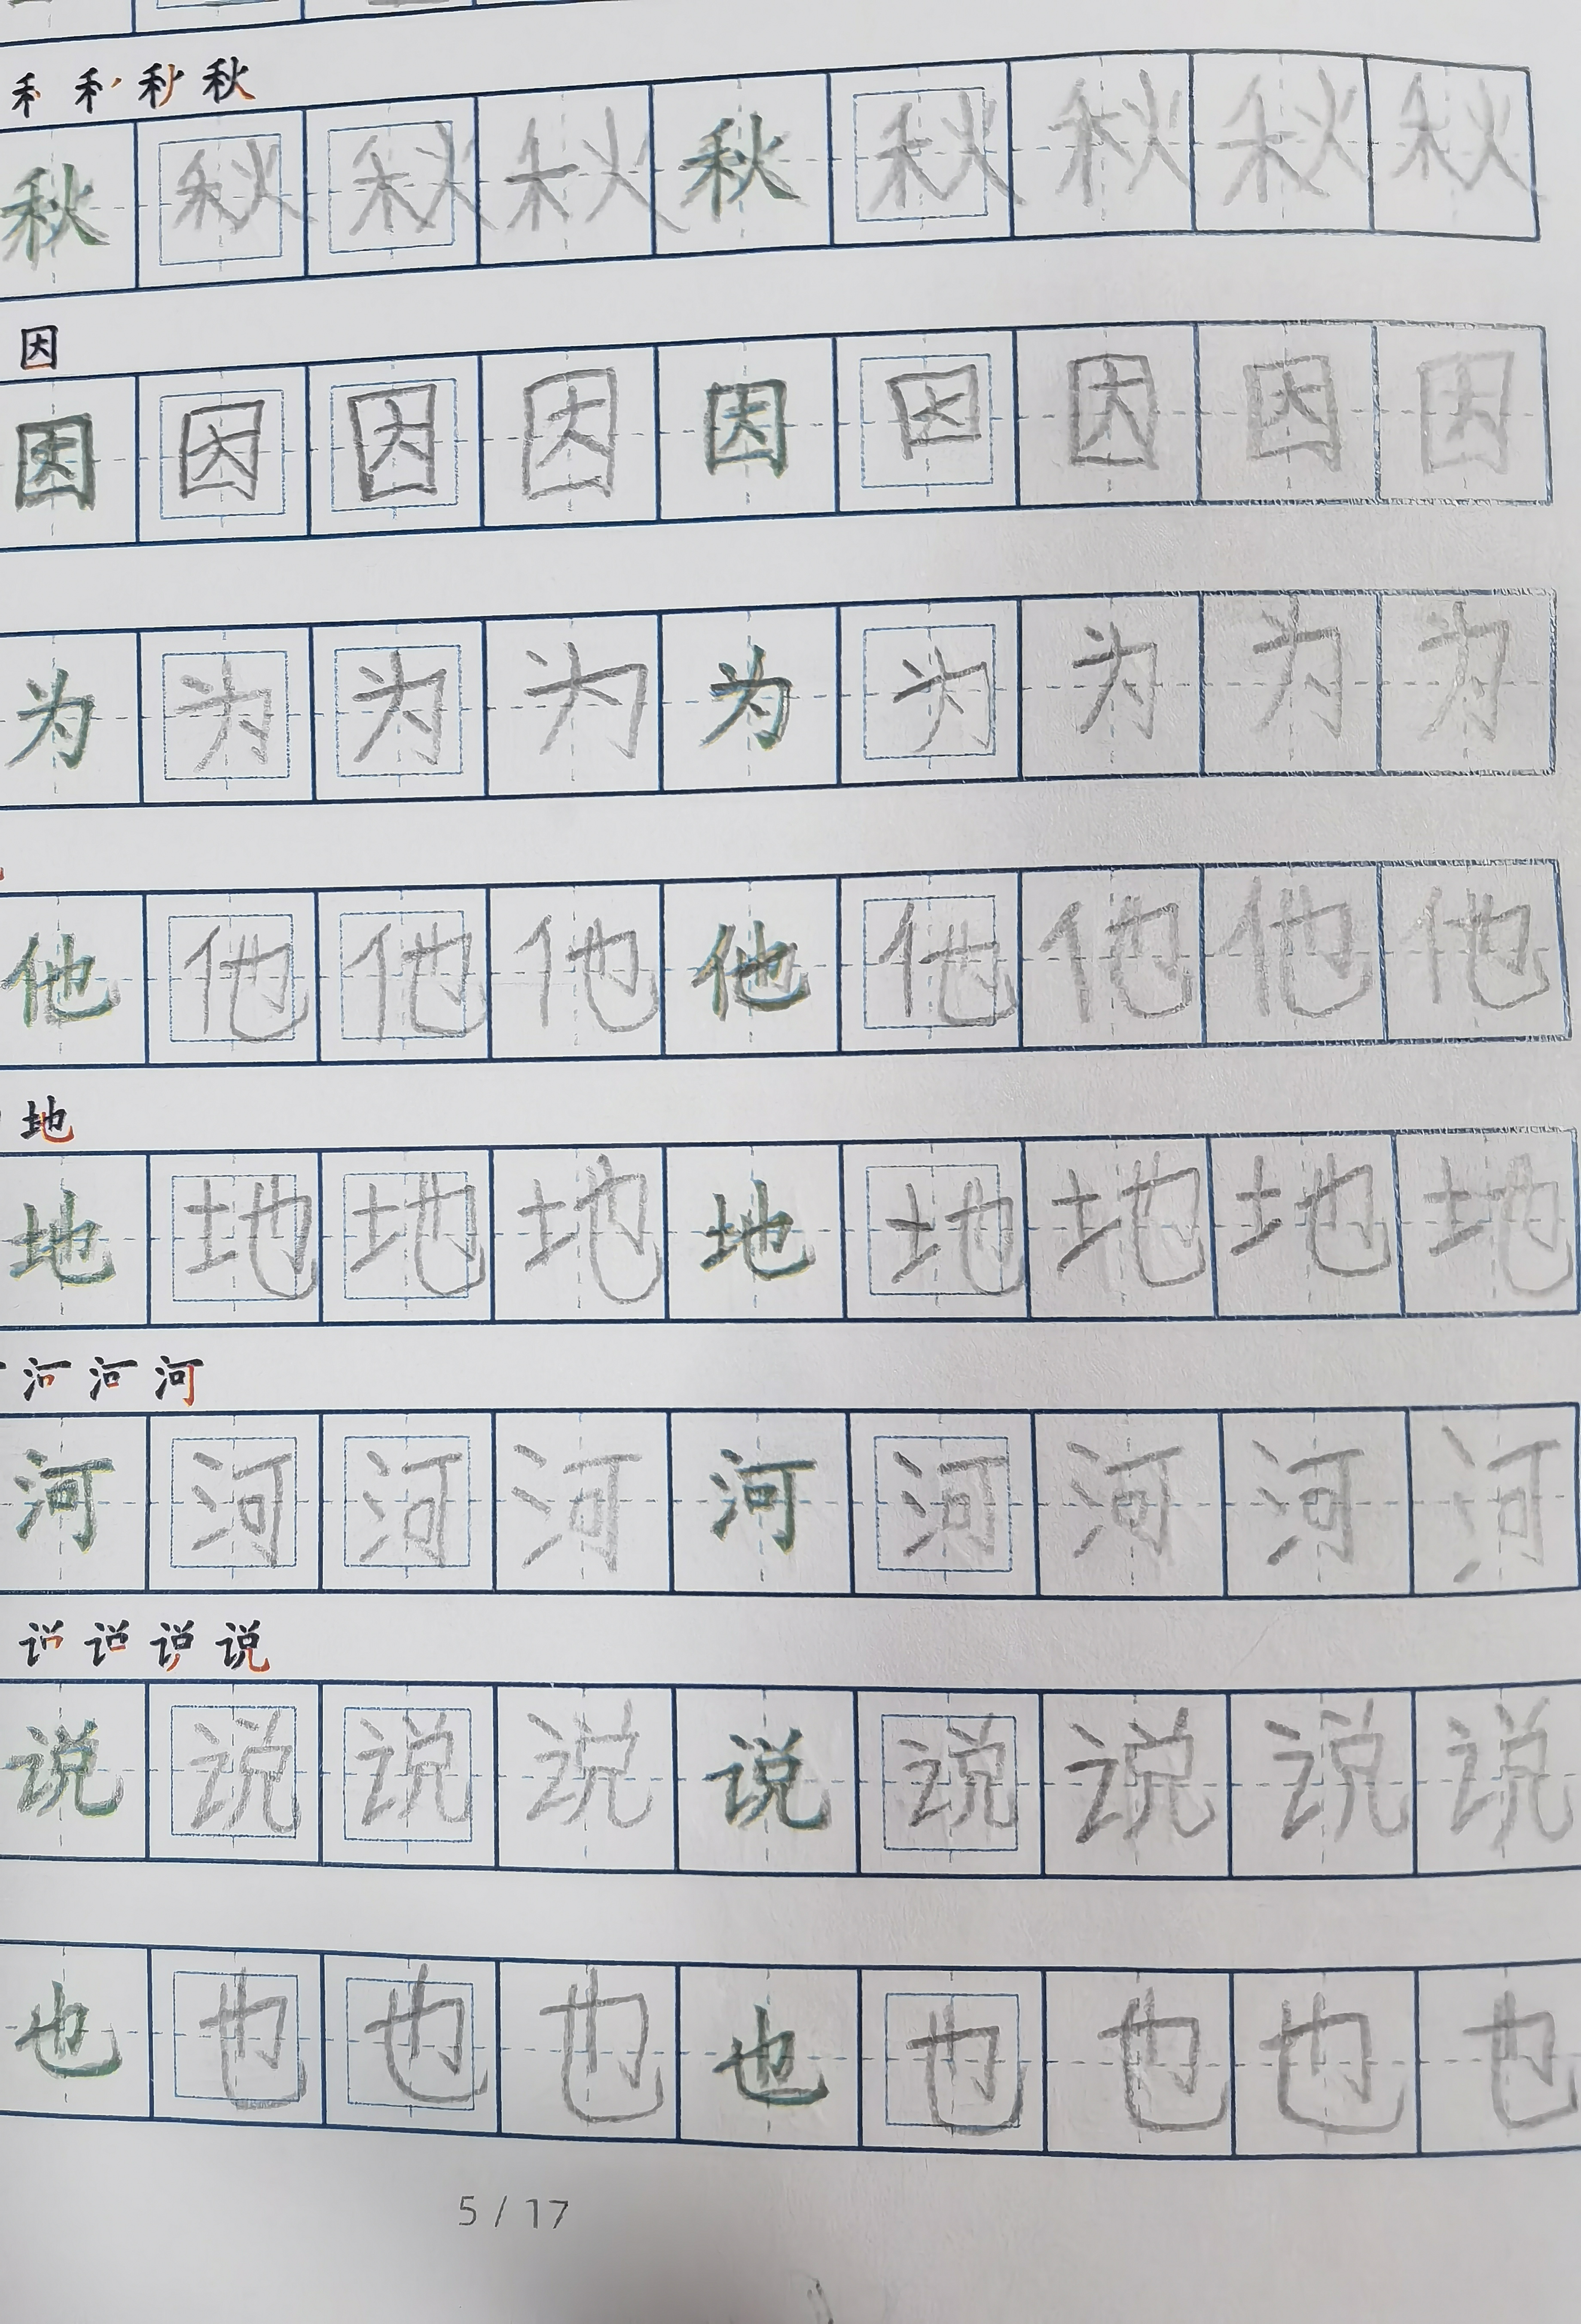 秋
秋 秋 秋 秋 秋 秋 秋 秋 秋
因
因 因 因 因 因 因 因 因 因
为 为 为 为 为 为 为 为 为
他 他 他 他 他 他 他 他 他
地
地 地 地 地 地 地 地 地 地
河
河 河 河 河 河 河 河 河 河
说
说 说 说 说 说 说 说 说 说
也 也 也 也 也 也 也 也 也
5 / 17